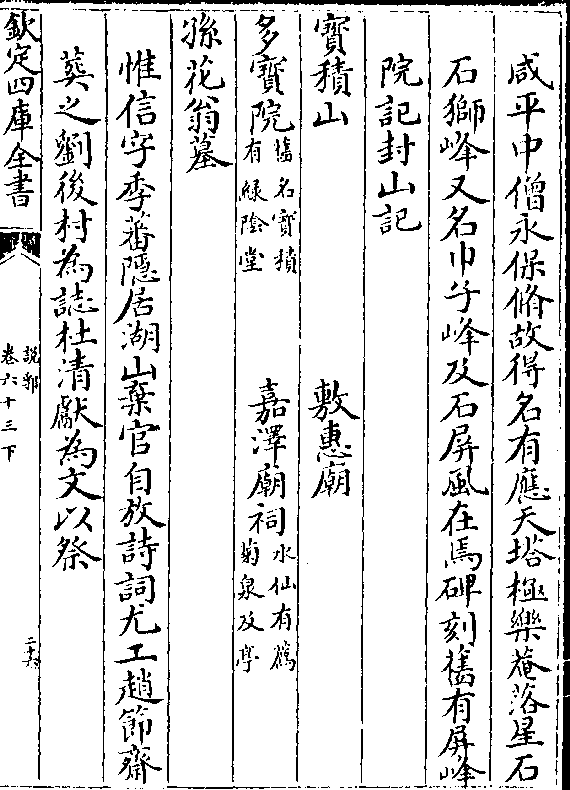 咸平中僧永保脩故得名有應天塔極樂菴落星石
石獅峰又名巾子峰及石屏風在焉碑刻舊有屏峰
院記封山記
寶積山　敷惠廟
多寶院舊名寶積有綠陰堂　嘉澤廟祠水仙有薦菊泉及亭
孫花翁墓
惟信字季蕃隱居湖山棄官自放詩詞尤工趙節齋
葬之劉後村為誌杜清獻為文以祭
欽定四庫全書　說郛卷六十三下　二十六